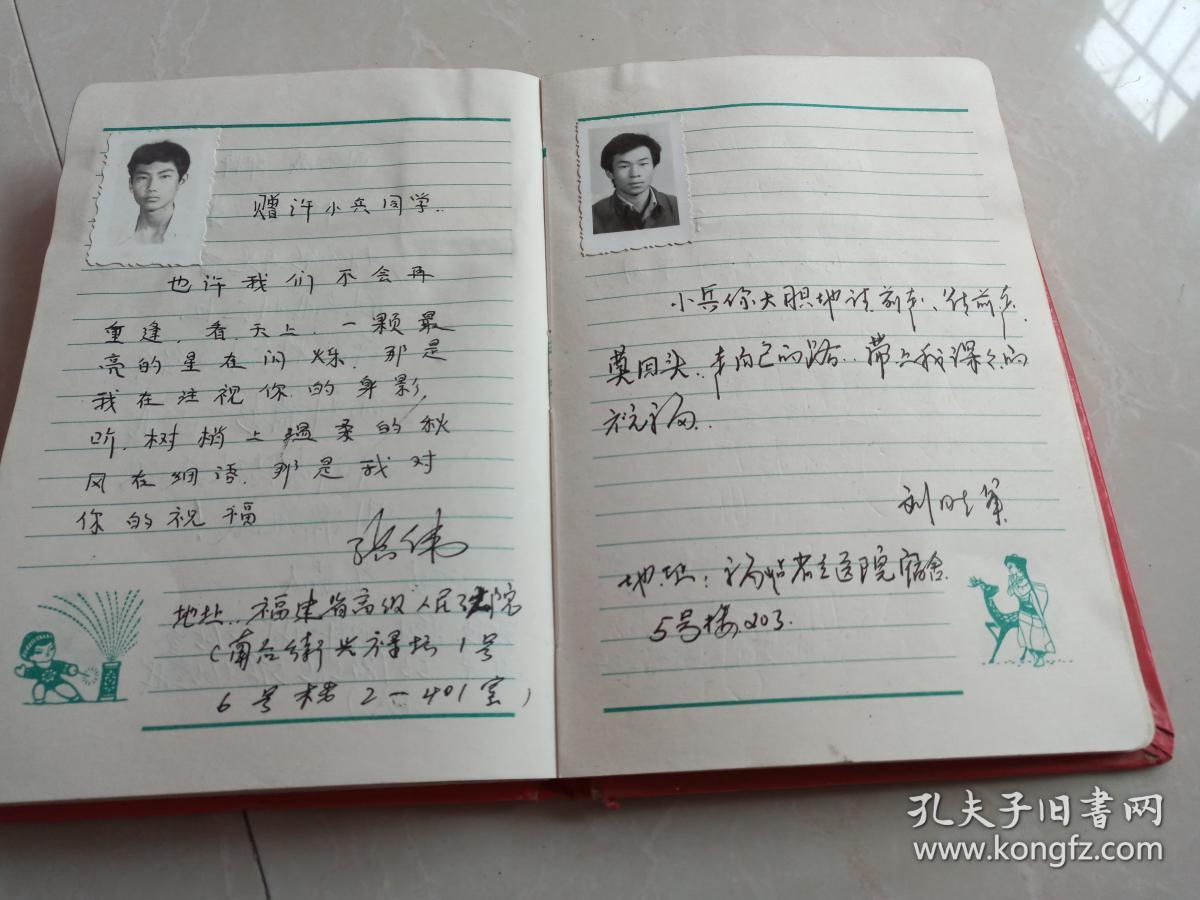 赠许小兵同学.
也许我们不会再
重逢,看天上,一颗最
亮的星在闪烁.那是
我在注视你的身影,
听,树梢上温柔的秋
风在细语,那是我对
你的祝福
张伟
地址:福建省高级人民法院
(南后街兴禄坊1号
6号楼2-401室)
小兵你大胆地往前走、往前走.
莫回头..走自己的路..带上我深深的
祝福..
刘
地址:福 省立医院宿舍
5号楼203.
孔夫子旧书网
www.kongfz.com